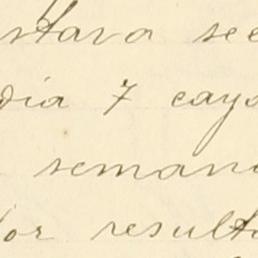 stava se
dia 7 cayo
semana
or result